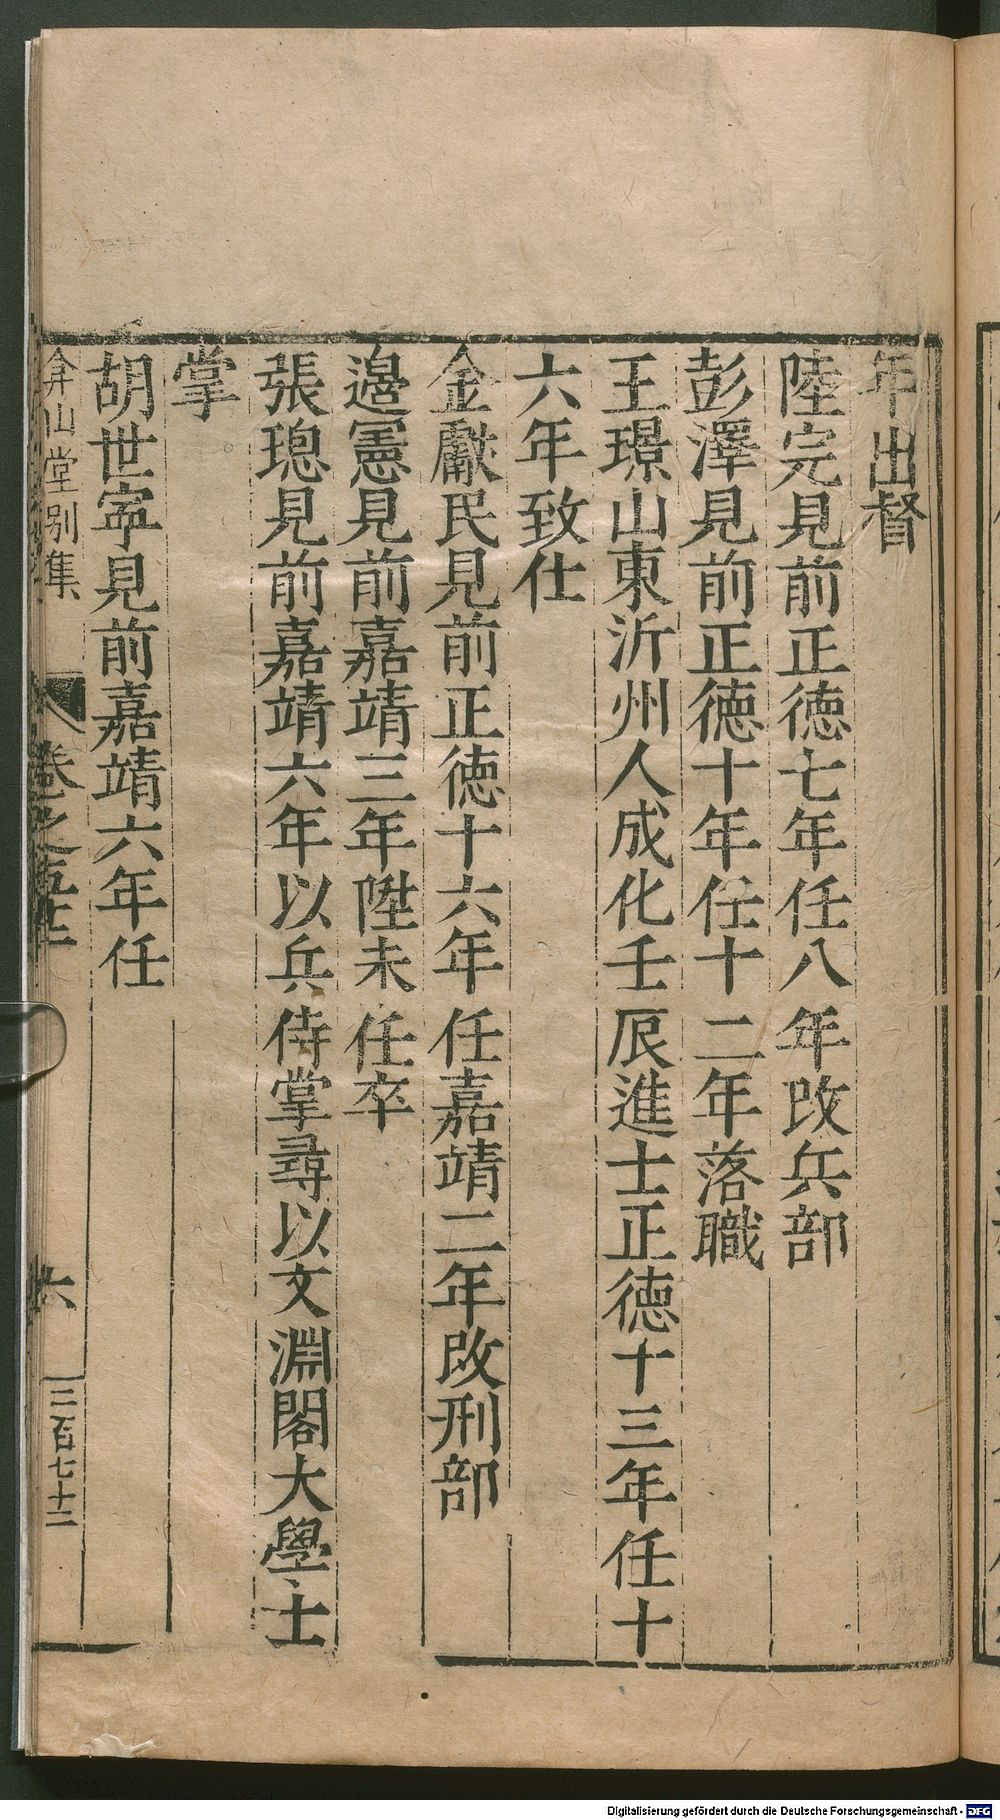 年出督
陸完見前正徳七年任八年改兵部
彭澤見前正徳十年任十二年落職
王璟山東沂州人成化壬辰進士正徳十三年任十
六年致仕
金獻民見前正徳十六年任嘉靖二年改刑部
邉憲見前嘉靖三年陞未任卒
張璁見前嘉靖六年以兵侍掌尋以文淵閣大學士
掌
胡世寜見前嘉靖六年任
弇山堂别集
卷之五十二
六
三百七十二
Digitalisierung gefördert durch die Deutsche Forschungsgemeinschaft - DFG